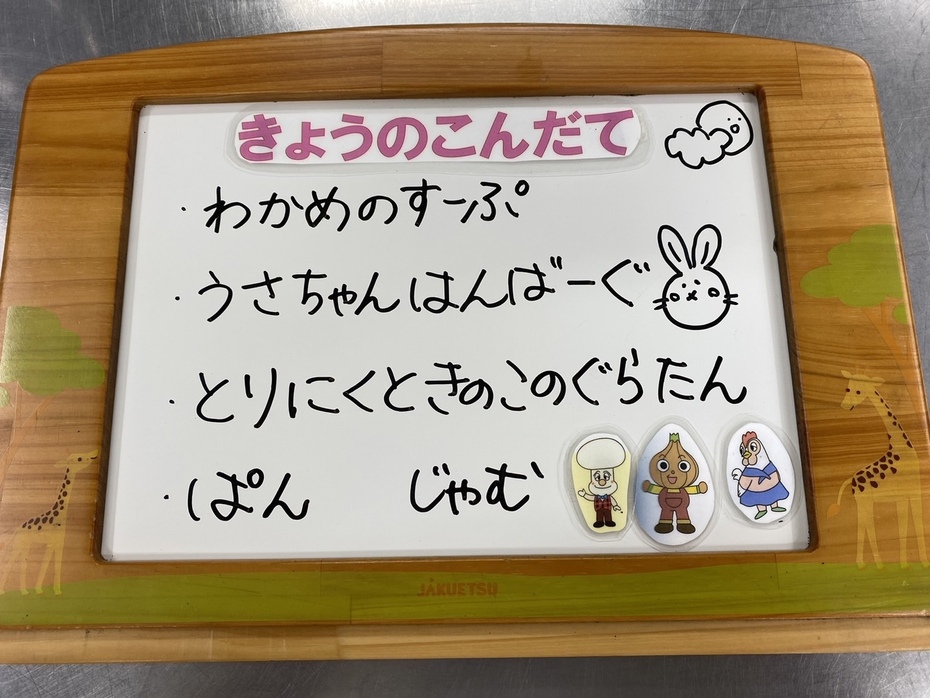 きょうのこんだて
・わかめのすーぷ
・うさちゃんはんばーぐ
・とりにくときのこのぐらたん
・ぱん じゃむ
JAKUETSU